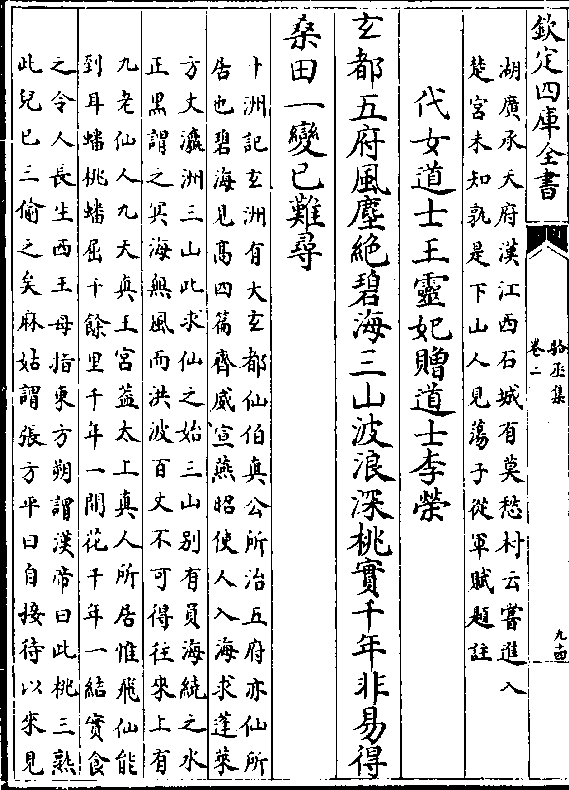 欽定四庫全書
駱丞集
卷二
九
湖廣承天府漢江西石城有莫愁村云嘗進入
楚宮未知孰是下山人見蕩子從軍賦題註
代女道士王靈妃贈道士李榮
玄都五府風塵絶碧海三山波浪深桃實千年非易得
桑田一變已難尋
十洲記玄洲有大玄都仙伯真公所治五府亦仙所
居也碧海見髙四篇齊威宣燕昭使人入海求蓬萊
方丈瀛洲三山此求仙之始三山别有員海繞之水
正黒謂之冥海無風而洪波百丈不可得往來上有
九老仙人九天真王宮葢太上真人所居惟飛仙能
到耳蟠桃蟠屈千餘里千年一開花千年一結實食
之令人長生西王母指東方朔謂漢帝曰此桃三熟
此兒已三偷之矣麻姑謂張方平曰自接待以來見